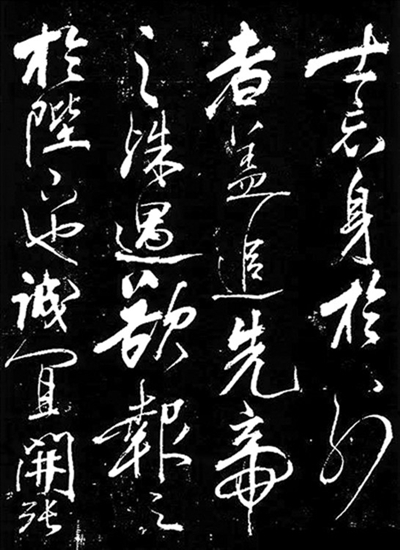 士忘身於外
者盖追先帝
之殊遇欲報之
於陛下也誠宜開張